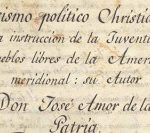 ismo político Christia
a instruccion de la Juventu
ueblos libres de la Amer
meridional: su Autor
Don José Amor de la
Patria